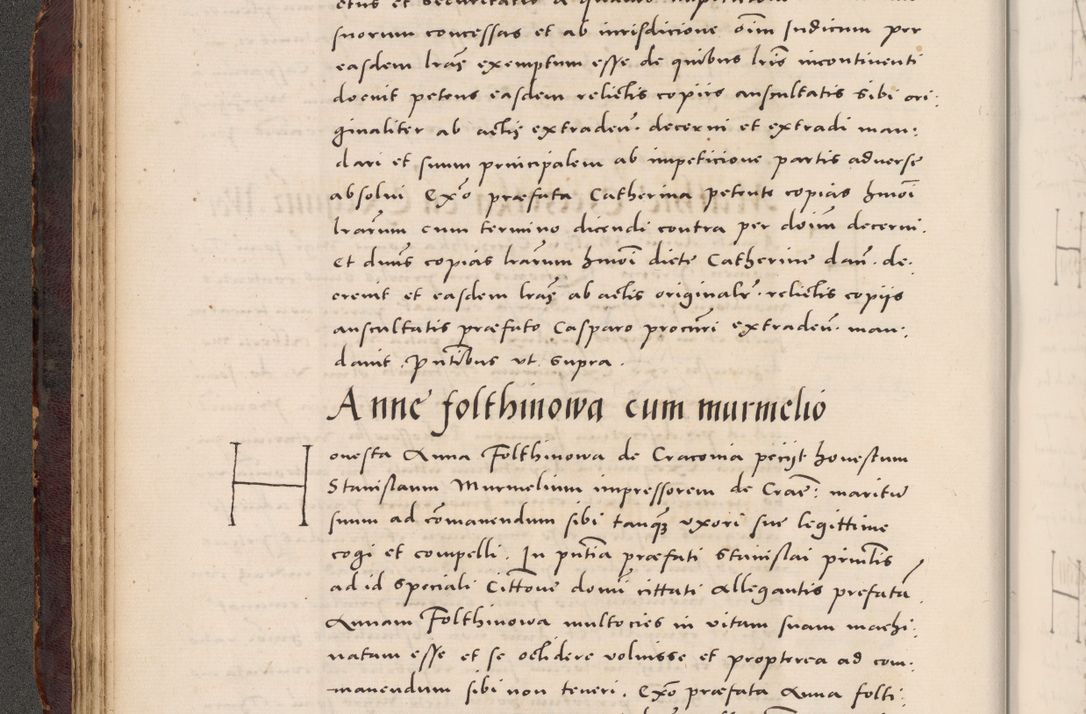 suorum concessas et ab iurisdicione oim Iudicum per
easdem lras exemptum esse de quibus lris incontinenti
docuit petens easdem relictis copiis auscultatis sibi ori:
ginaliter ab actis extraden. decerni et extradi man:
dari et suum principalem ab impeticione partis adverse
absolui Exo præfata Catherina petente copias hmoi
lrarum cum termino dicendi contra per doim decerni.
Et dnus copias lrarum hmoi dicte Catherine dan. de:
crevit et easdem lras ab actis originalr. relictis copijs
auscultatis præfato Casparo procuri extraden. man:
davit. Pntibus ut supra.
Anne folthinowa cum murmelio
Honesta Anna Folthinowa de Cracovia petijt honestum
Stanislaum Murmelium impressorem de Crac: maritu
suum ad comanendum sibi tanq3 uxori sue legittime
cogi et compelli. In pntia præfati Stanislai printis
ad id speciali Cittone domi cittati allegantis prefata
Annam Folthinowa multocies in vitam suam machi:
natam esse et se occidere voluisse et propterea ad com:
manendum sibi non teneri. Exo præfata Anna folti: